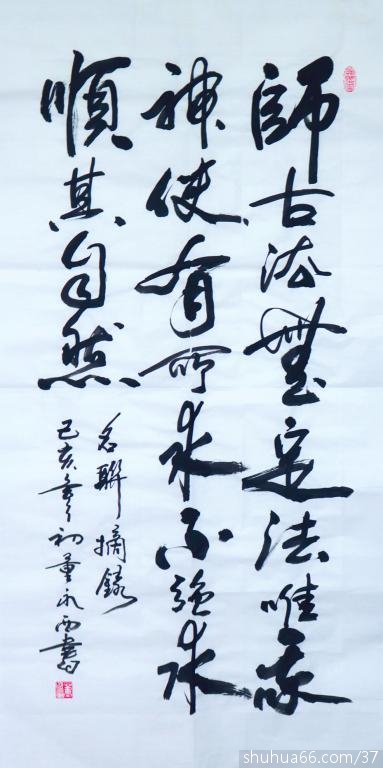 師古法無定法唯我
神使有所求不強求
順其自然
名聯摘錄
己亥年初董永西書
shuhua66.com/37